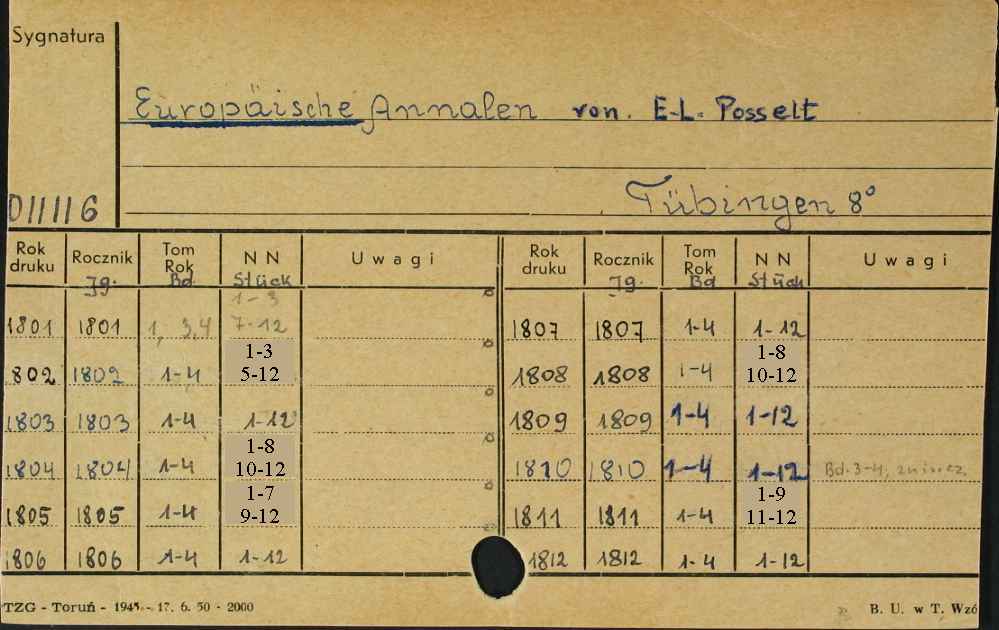 Sygnatura
Europäische Annalen von. E-L. Posselt
Tübingen 8°
011116
Rok druku Rocznik Jg. Tom Rok Bd. N N Stück Uwagi Rok druku Rocznik Jg. Tom Rok Bd N N Stück Uwagi
1801 1801 1, 3,4 1-3 7-12 1807 1807 1-4 1-12
1802 1802 1-4 1-3 5-12 1808 1808 1-4 1-8 10-12
1803 1803 1-4 1-12 1809 1809 1-4 1-12
1804 1804 1-4 1-8 10-12 1810 1810 1-4 1-12 Bd. 3-4, zniszcz.
1805 1805 1-4 1-7 9-12 1811 1811 1-4 1-9 11-12
1806 1806 1-4 1-12 1812 1812 1-4 1-12
TZG - Toruń - 1945 - 17. 6. 50 - 2000 B. U. w T. Wzó